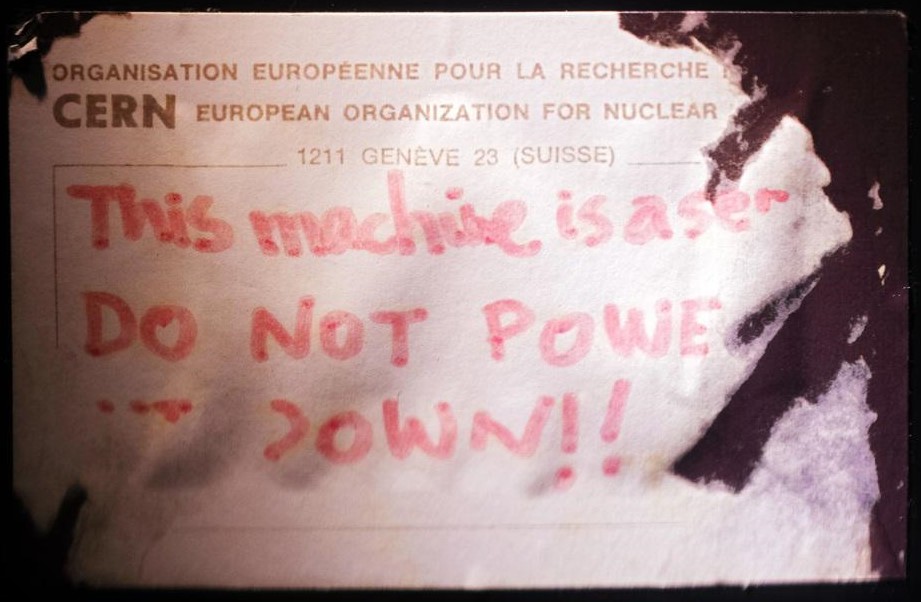 ORGANISATION EUROPÉENNE POUR LA RECHERCHE
CERN EUROPEAN ORGANIZATION FOR NUCLEAR
1211 GENÈVE 23 (SUISSE)
This machine is a ser
DO NOT POWE
DOWN!!